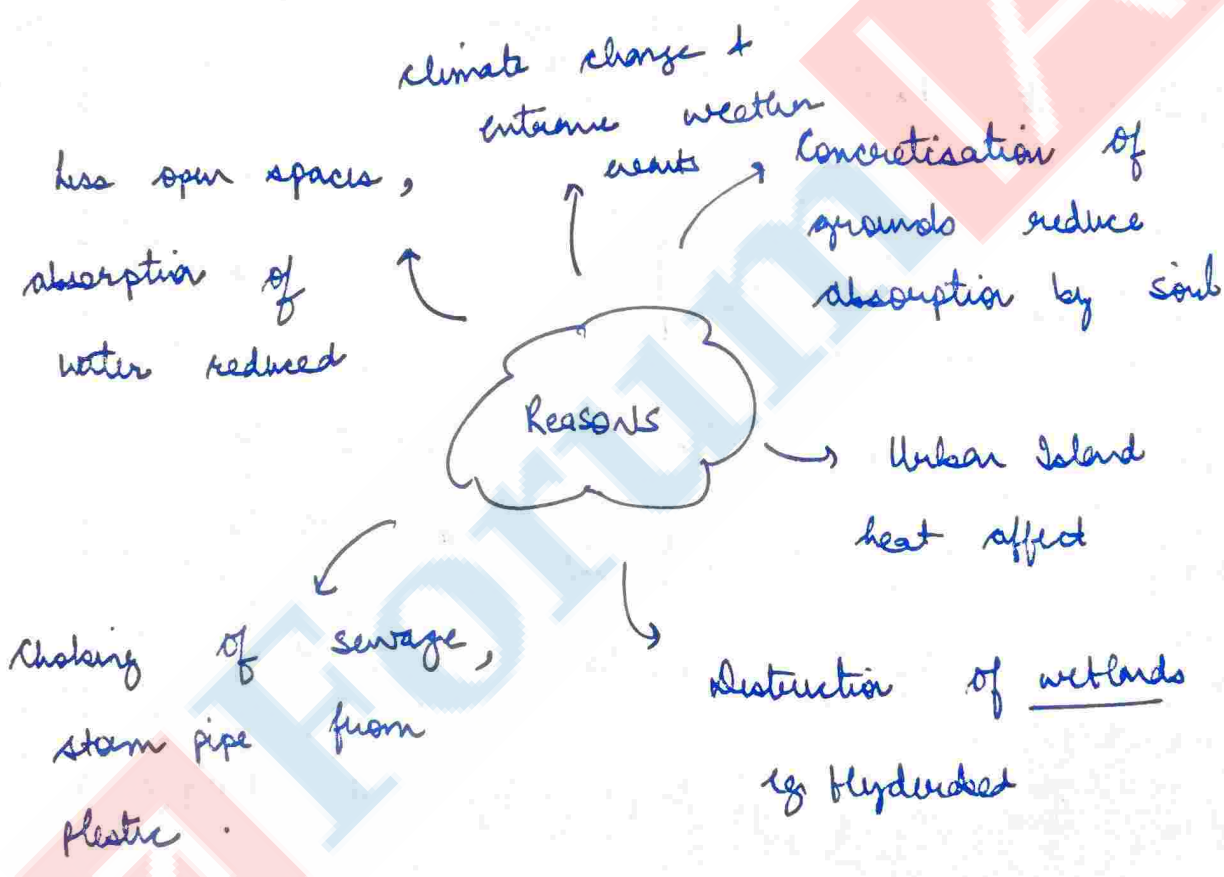 climate change &
extreme weather
events
Less open spaces,
absorption of
water reduced
Concretisation of
grounds reduce
absorption by soil
Reasons
Urban Island
heat affect
Choking of sewage,
storm pipe from
plastic.
Destruction of wetlands
eg Hyderabad
Forum IA